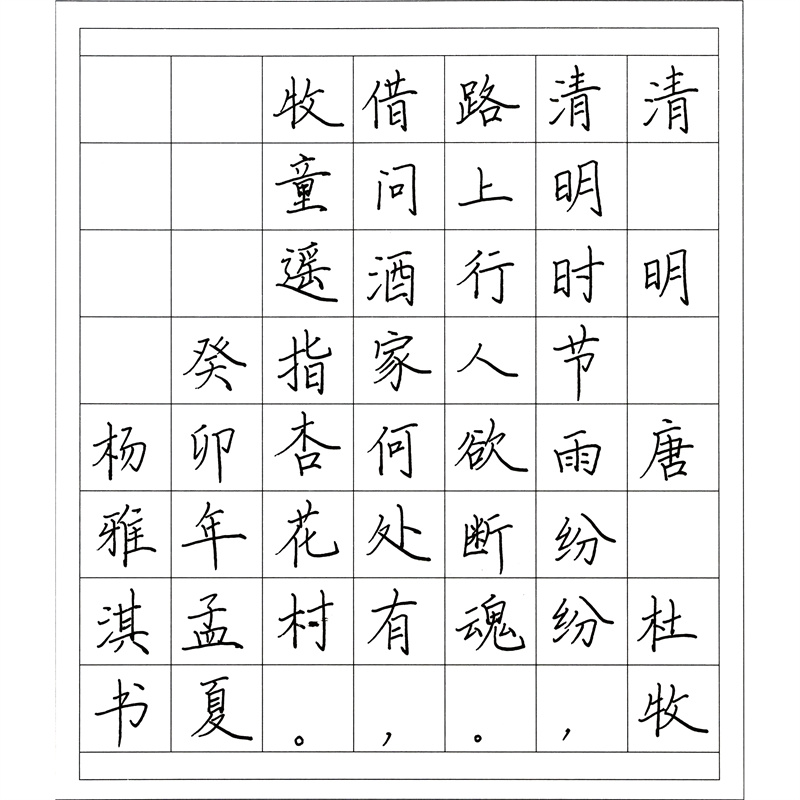 清明唐杜牧
清明时节雨纷纷，
路上行人欲断魂。
借问酒家何处有，
牧童遥指杏花村。
癸卯年孟夏
杨雅淇书